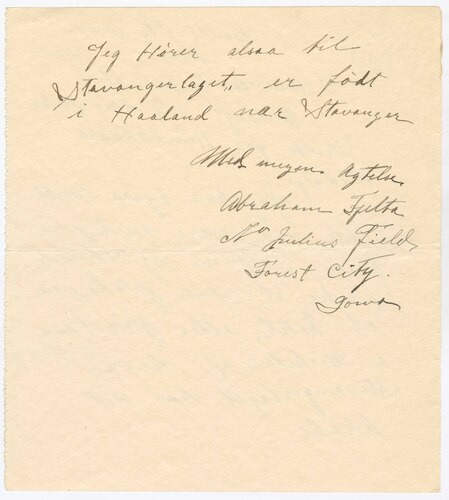 Jeg Hører alsaa til
Stavangerlaget, er født
i Haaland nær Stavanger
Med megen Agtelse
Abraham Tjelta
No Julius Field,
Forest City.
Iowa